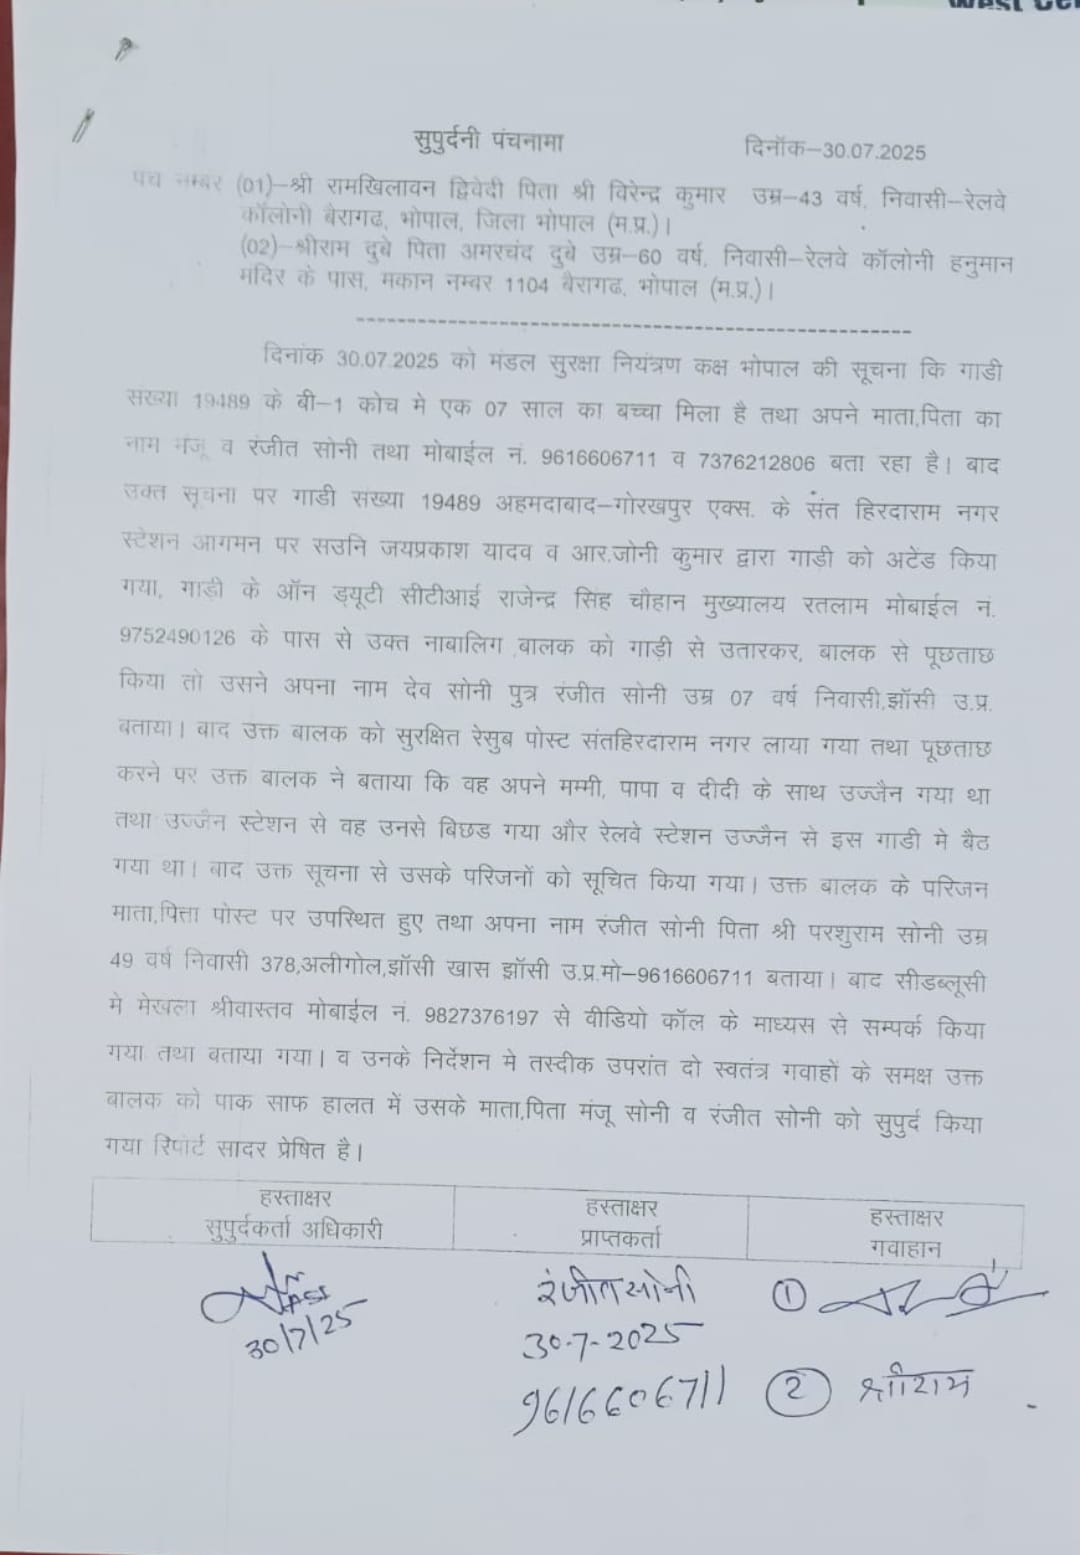 West Ce
सुपुर्दनी पंचनामा दिनॉक–30.07.2025
पंच नम्बर (01)–श्री रामखिलावन द्विवेदी पिता श्री विरेन्द्र कुमार उम्र–43 वर्ष, निवासी–रेलवे
कॉलोनी बैरागढ, भोपाल, जिला भोपाल (म.प्र.)।
(02)–श्रीराम दुबे पिता अमरचंद दुबे उम्र–60 वर्ष, निवासी–रेलवे कॉलोनी हनुमान
मंदिर के पास, मकान नम्बर 1104 बैरागढ, भोपाल (म.प्र.)।
दिनांक 30.07.2025 को मंडल सुरक्षा नियंत्रण कक्ष भोपाल की सूचना कि गाडी
संख्या 19489 के बी–1 कोच मे एक 07 साल का बच्चा मिला है तथा अपने माता,पिता का
नाम मंजू व रंजीत सोनी तथा मोबाईल नं. 9616606711 व 7376212806 बता रहा है। बाद
उक्त सूचना पर गाडी संख्या 19489 अहमदाबाद–गोरखपुर एक्स. के संत हिरदाराम नगर
स्टेशन आगमन पर सउनि जयप्रकाश यादव व आर.जोनी कुमार द्वारा गाडी को अटेंड किया
गया, गाड़ी के ऑन ड्यूटी सीटीआई राजेन्द्र सिंह चौहान मुख्यालय रतलाम मोबाईल नं.
9752490126 के पास से उक्त नाबालिग ,बालक को गाड़ी से उतारकर, बालक से पूछताछ
किया तो उसने अपना नाम देव सोनी पुत्र रंजीत सोनी उम्र 07 वर्ष निवासी,झॉसी उ.प्र.
बताया। बाद उक्त बालक को सुरक्षित रेसुब पोस्ट संतहिरदाराम नगर लाया गया तथा पूछताछ
करने पर उक्त बालक ने बताया कि वह अपने मम्मी, पापा व दीदी के साथ उज्जैन गया था
तथा उज्जैन स्टेशन से वह उनसे बिछड गया और रेलवे स्टेशन उज्जैन से इस गाडी मे बैठ
गया था। बाद उक्त सूचना से उसके परिजनों को सूचित किया गया। उक्त बालक के परिजन
माता,पिता पोस्ट पर उपस्थित हुए तथा अपना नाम रंजीत सोनी पिता श्री परशुराम सोनी उम्र
49 वर्ष निवासी 378,अलीगोल,झॉसी खास झॉसी उ.प्र.मो–9616606711 बताया। बाद सीडब्लूसी
मे मेखला श्रीवास्तव मोबाईल नं. 9827376197 से वीडियो कॉल के माध्यस से सम्पर्क किया
गया तथा बताया गया। व उनके निर्देशन मे तस्दीक उपरांत दो स्वतंत्र गवाहों के समक्ष उक्त
बालक को पाक साफ हालत में उसके माता,पिता मंजू सोनी व रंजीत सोनी को सुपुर्द किया
गया रिपोर्ट सादर प्रेषित है।
हस्ताक्षर हस्ताक्षर हस्ताक्षर
सुपुर्दकर्ता अधिकारी प्राप्तकर्ता गवाहान
ASI रंजीत सोनी 1
30/7/25 30-7-2025
9616606711 2 श्रीराम